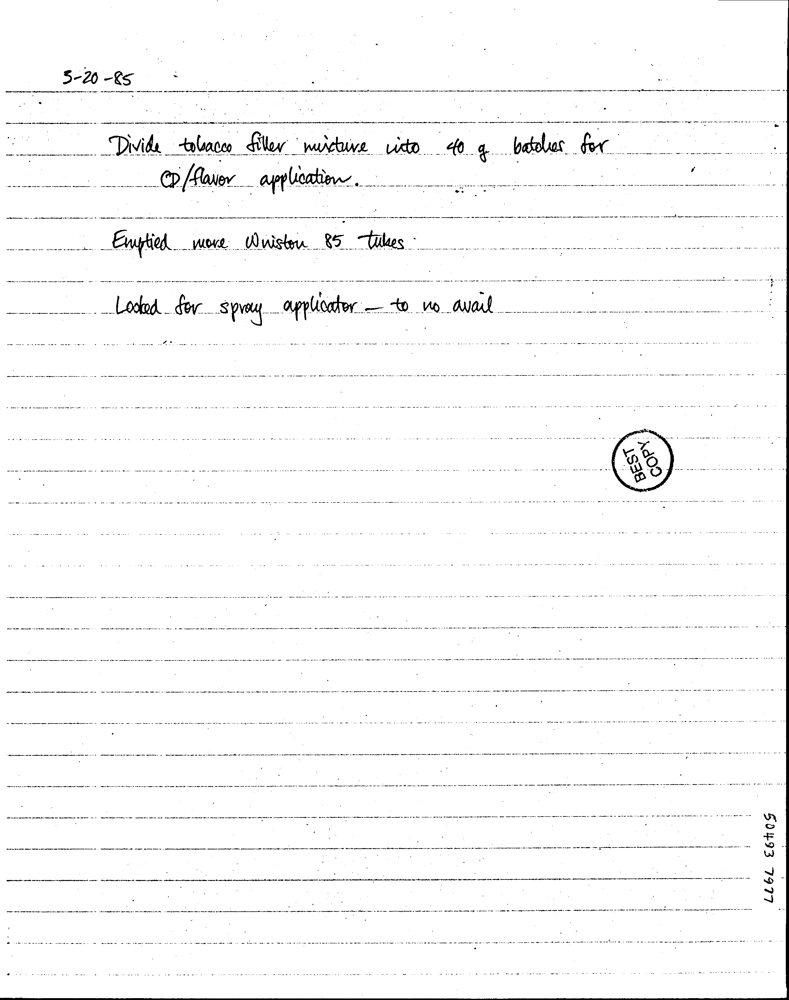 3-20-85
Divide tobacco filler mixture into 40 g batches for
CD/flavor application.
Emptied more Winston 85 tubes.
Looked for spray applicator – to no avail
BEST
COPY
50493 7977